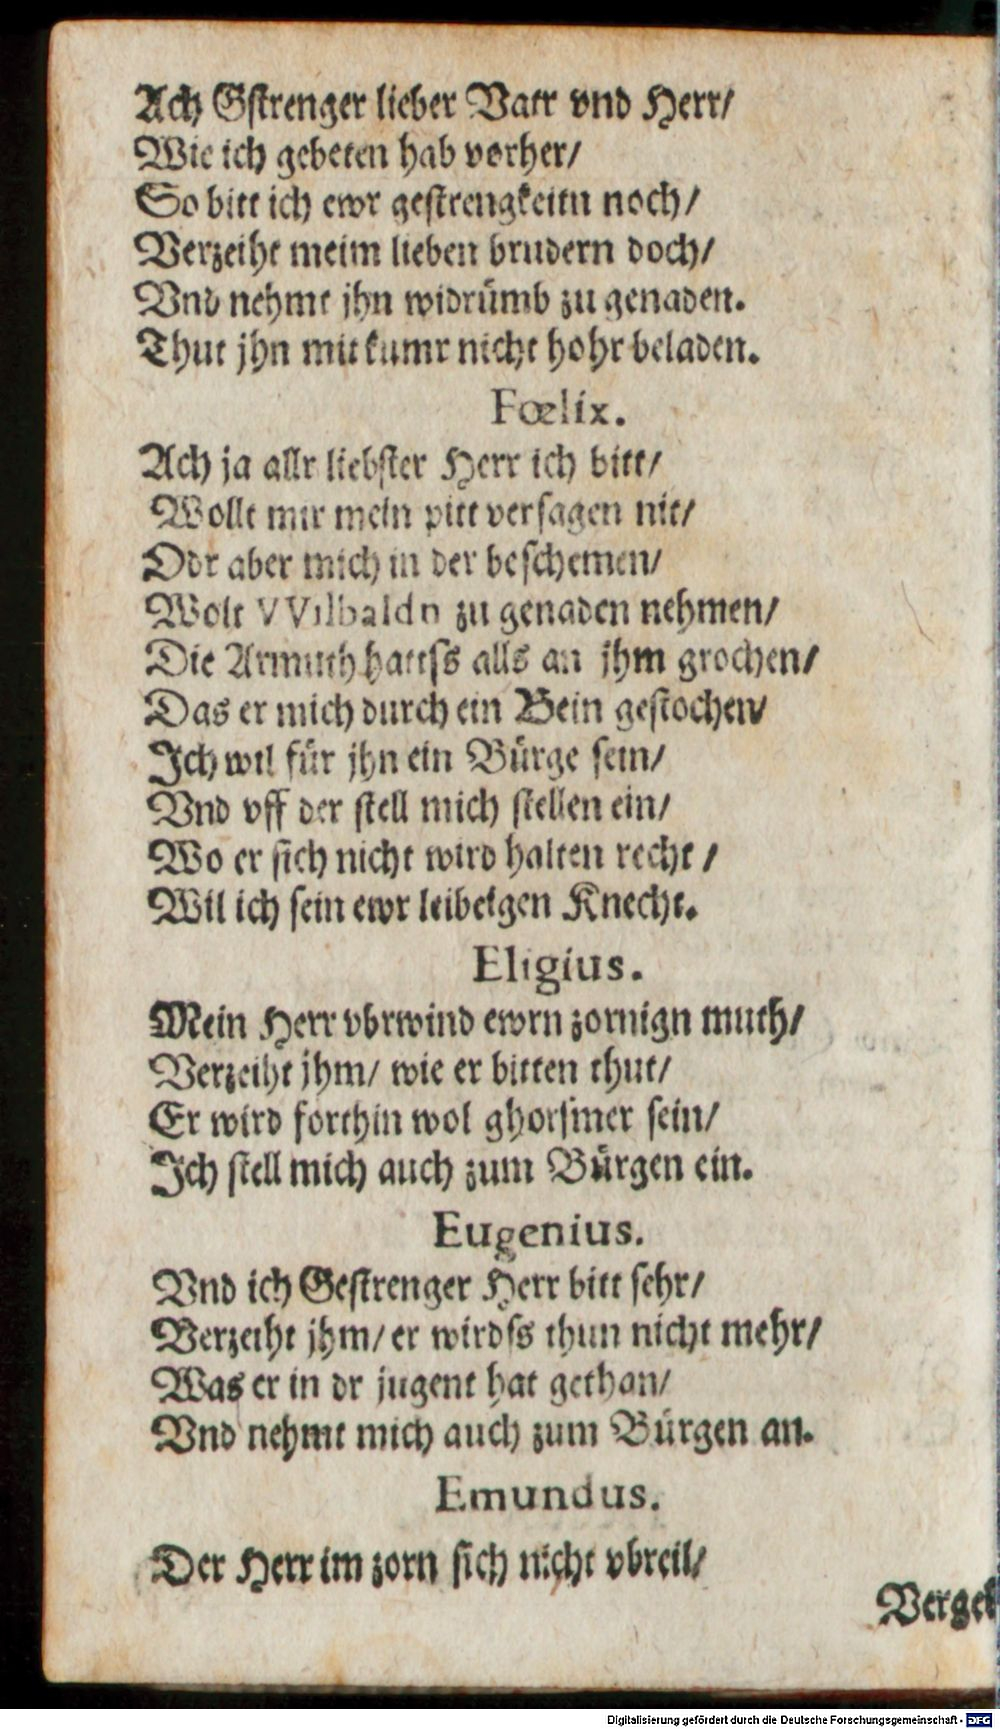 Ach Gstrenger lieber Vatr vnd Herr/
Wie ich gebeten hab vorher/
So bitt ich ewr gestrengkeitn noch/
Verzeiht meim lieben brudern doch/
Vnd nehmt jhn widrümb zu genaden.
Thut jhn mit kumr nicht hohr beladen.
Fœlix.
Ach ja allr liebster Herr ich bitt/
Wollt mir mein pitt versagen nit/
Odr aber mich in der beschemen/
Wolt VVilbaldn zu genaden nehmen/
Die Armuth hattss alls an jhm grochen/
Das er mich durch ein Bein gestochen/
Ich wil für jhn ein Bürge sein/
Vnd vff der stell mich stellen ein/
Wo er sich nicht wird halten recht /
Wil ich sein ewr leibeigen Knecht.
Eligius.
Mein Herr vbrwind ewrn zornign muth/
Verzeiht jhm/ wie er bitten thut/
Er wird forthin wol ghorsmer sein/
Ich stell mich auch zum Bürgen ein.
Eugenius.
Vnd ich Gestrenger Herr bitt sehr/
Verzeiht jhm/ er wirdss thun nicht mehr/
Was er in dr jugent hat gethan/
Vnd nehmt mich auch zum Bürgen an.
Emundus.
Der Herr im zorn sich nicht vbreil/
Vergek
Digitalisierung gefördert durch die Deutsche Forschungsgemeinschaft - DFG